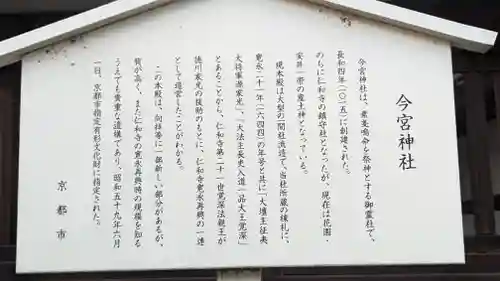 今宮神社
今宮神社は、素盞嗚命を祭神とする御霊社で、
長和四年(一〇一五)に創建された。
のちに仁和寺の鎮守社となったが、現在は花園・
安井一帯の産土神となっている。
現本殿は大型の一間社流造で、当社所蔵の棟札に、
寛永二十一年(一六四四)の年号と共に「大壇主征夷
大将軍源家光」、「大法主長吏入道一品大王覚深」
とあることから、仁和寺第二十一世覚深法親王が
徳川家光の援助のもとに、仁和寺寛永再興の一連
として造営したことがわかる。
この本殿は、向拝等に一部新しい部分があるが、
質が高く、また仁和寺の寛永再興時の規模を知る
うえでも貴重な遺構であり、昭和五十九年六月
一日、京都市指定有形文化財に指定された。
京都市